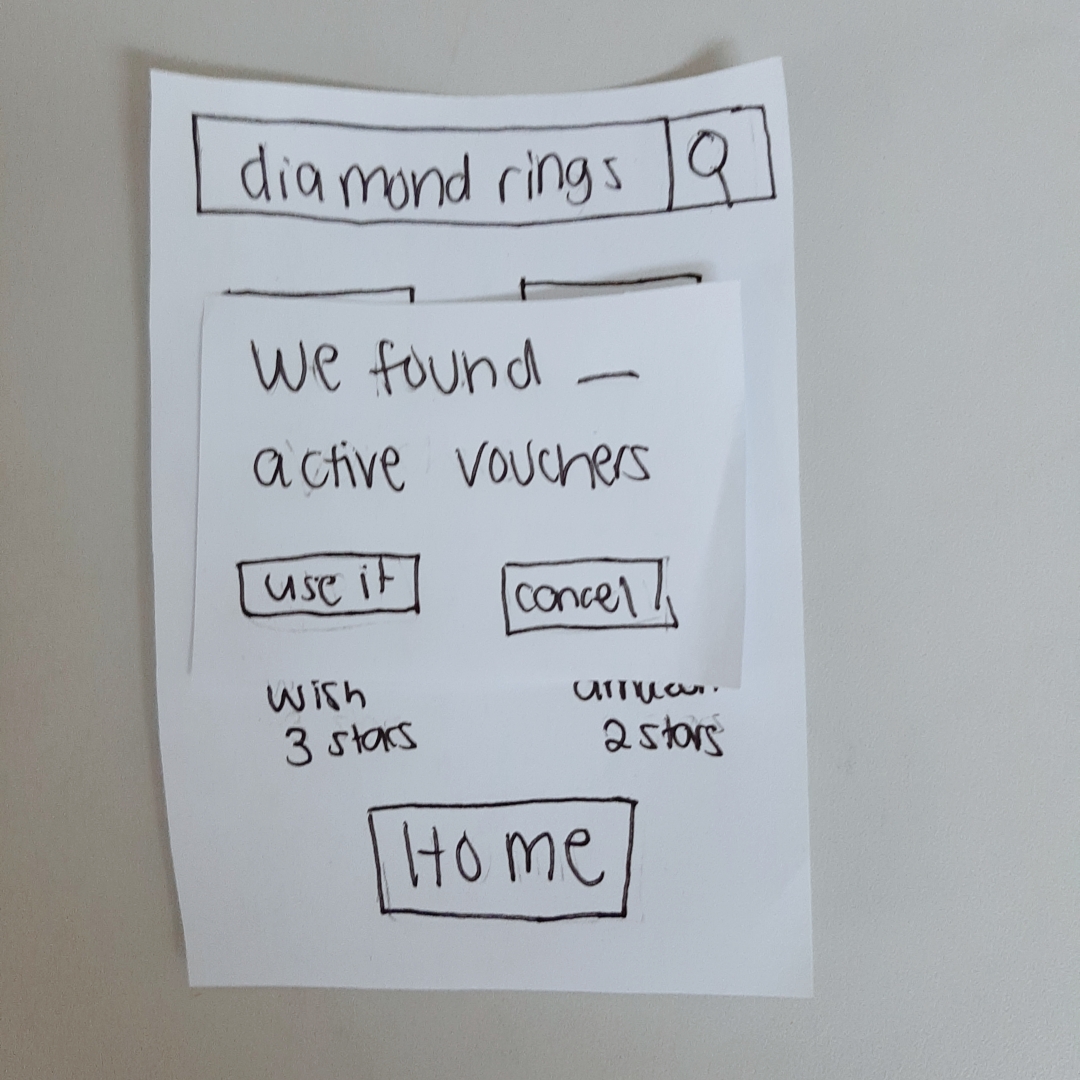 diamond rings
We found —
active vouchers
use it
cancel
wish
3 stars
2 stars
Home